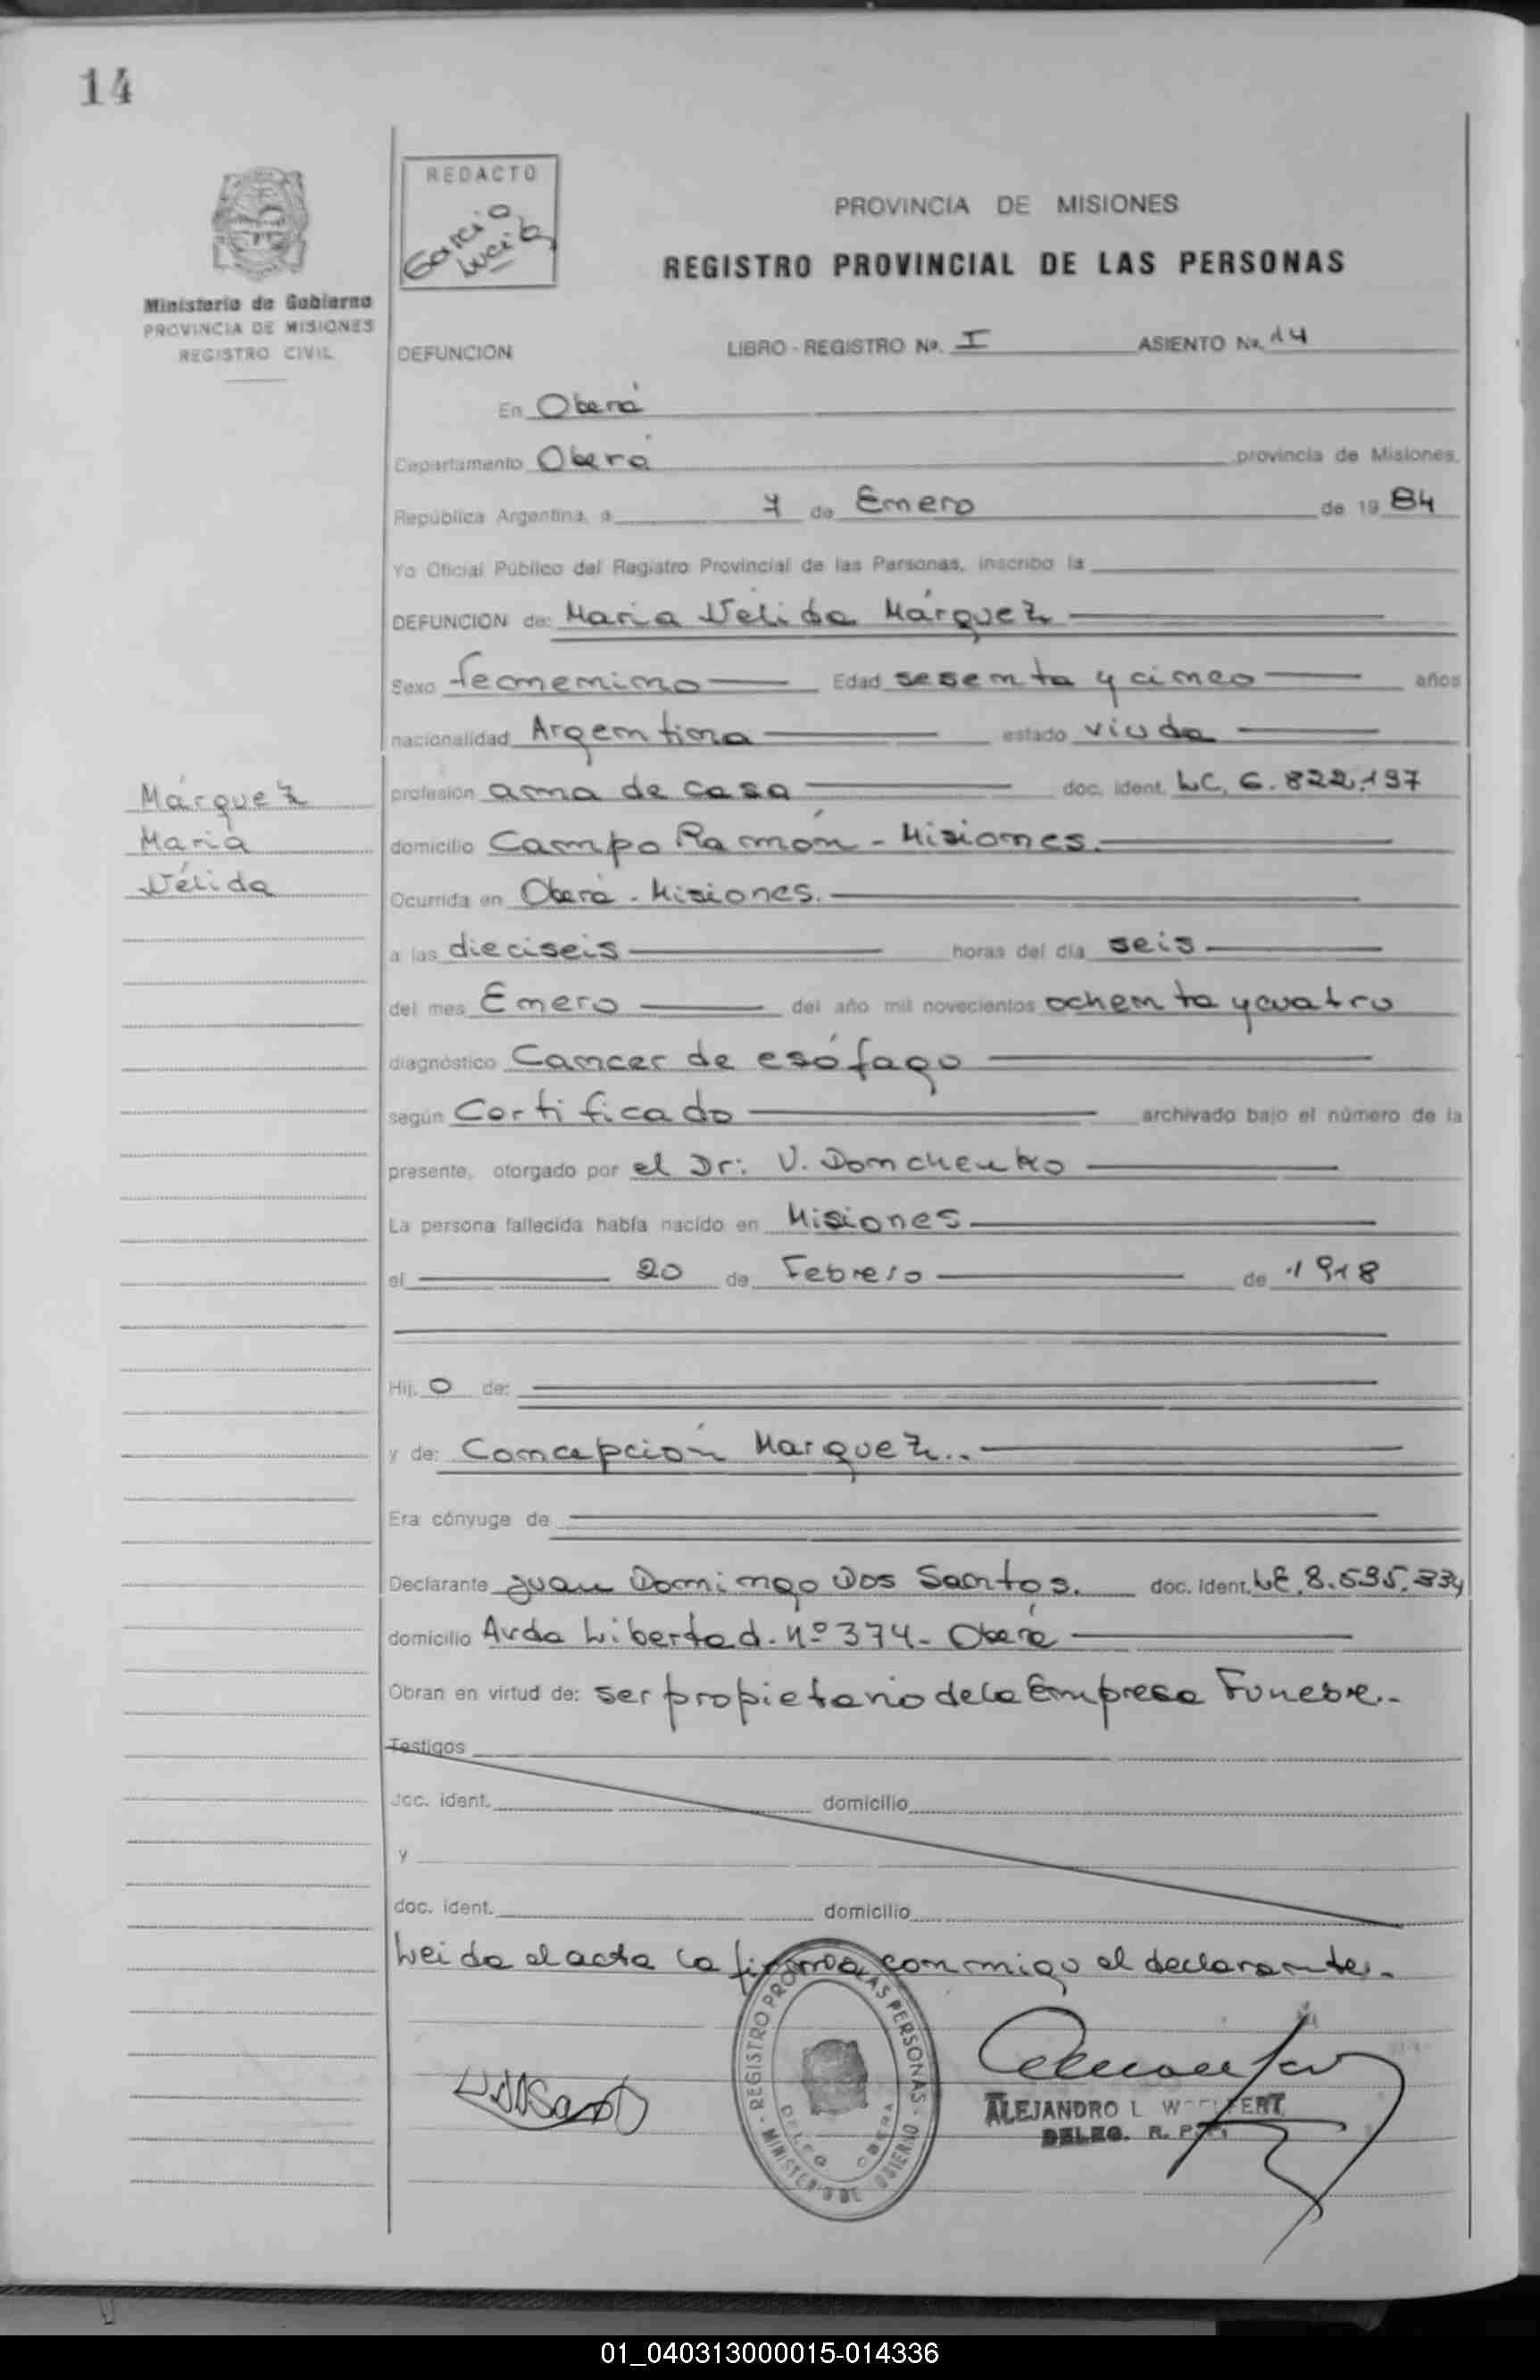 14
REDACTO
Garcia
Lucia
Ministerio de Gobierno
PROVINCIA DE MISIONES
REGISTRO CIVIL
PROVINCIA DE MISIONES
REGISTRO PROVINCIAL DE LAS PERSONAS
DEFUNCION LIBRO - REGISTRO No. I ASIENTO No. 14
En Oberá
Departamento Oberá provincia de Misiones,
República Argentina, a 7 de Enero de 19 84
Yo Oficial Público del Registro Provincial de las Personas, inscribo la
DEFUNCION de: Maria Nélida Márquez
Sexo femenino Edad sesenta y cinco años
nacionalidad Argentina estado viuda
profesión ama de casa doc. ident. LC. 6.822.197
domicilio Campo Ramón - Misiones.
Ocurrida en Oberá - Misiones.
a las dieciseis horas del día seis
del mes Enero del año mil novecientos ochenta y cuatro
diagnóstico Cancer de esófago
según Certificado archivado bajo el número de la
presente, otorgado por el Dr: V. Domchenko
La persona fallecida había nacido en Misiones
el 20 de Febrero de 1918
Hij. o de:
y de: Concepción Marquez..
Era cónyuge de
Declarante Juan Domingo Dos Santos. doc. ident. LE. 8.535.334
domicilio Avda Libertad. Nº 374 - Oberá
Obran en virtud de: ser propietario de la Empresa Funebre.-
Testigos
doc. ident. domicilio
y
doc. ident. domicilio
Leida el acta la firma conmigo el declarante.-
Márquez
Maria
Nélida
REGISTRO PRO LAS PERSONAS
MINISTERIO DE GOBIERNO
DELEG OBERA
ALEJANDRO L.
DELEG. R. P.
01_040313000015-014336